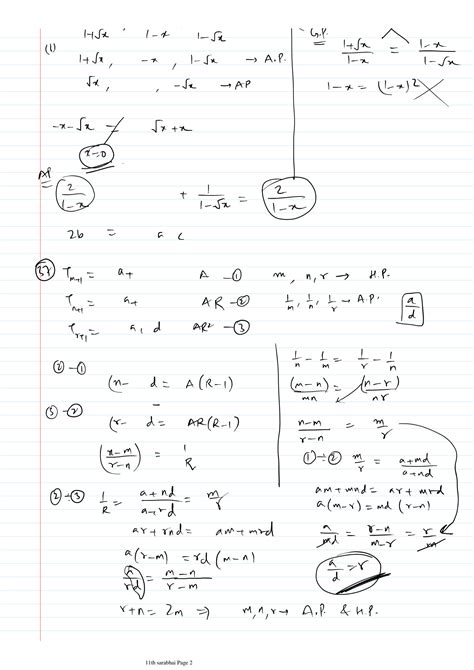 1+√x 1-x 1-√x
(1) 1+√x, -x, 1-√x → A.P.
√x, , -√x → AP
-x-√x = √x+x
x=0
G.P.
(1+√x)/(1-x) = (1-x)/(1-√x)
1-x = (1-x)²
AP
2/(1-x) + 1/(1-√x) = 2/(1-x)
2b = a c
37) T_{m+1} = a+ A -①
T_{n+1} = a+ AR -②
T_{r+1} = a, d AR² -③
m, n, r → H.P.
1/m, 1/n, 1/r → A.P.
a/d
②-①
(n- d = A(R-1)
③-②
(r- d = AR(R-1)
(n-m)/(r-n) = 1/R
②÷③ 1/R = (a+nd)/(a+rd) = m/r
ar+rnd = am+mrd
a(r-m) = rd(m-n)
a/rd = (m-n)/(r-m)
r+n = 2m ⇒ m,n,r → A.P. & H.P.
1/n - 1/m = 1/r - 1/n
(m-n)/mn = (n-r)/nr
(n-m)/(r-n) = m/r
①÷② m/r = (a+md)/(a+nd)
am+mnd = ar+mrd
a(m-r) = md(r-n)
a/md = (r-n)/(m-r) = r/m
a/d = r
11th sarabhai Page 2